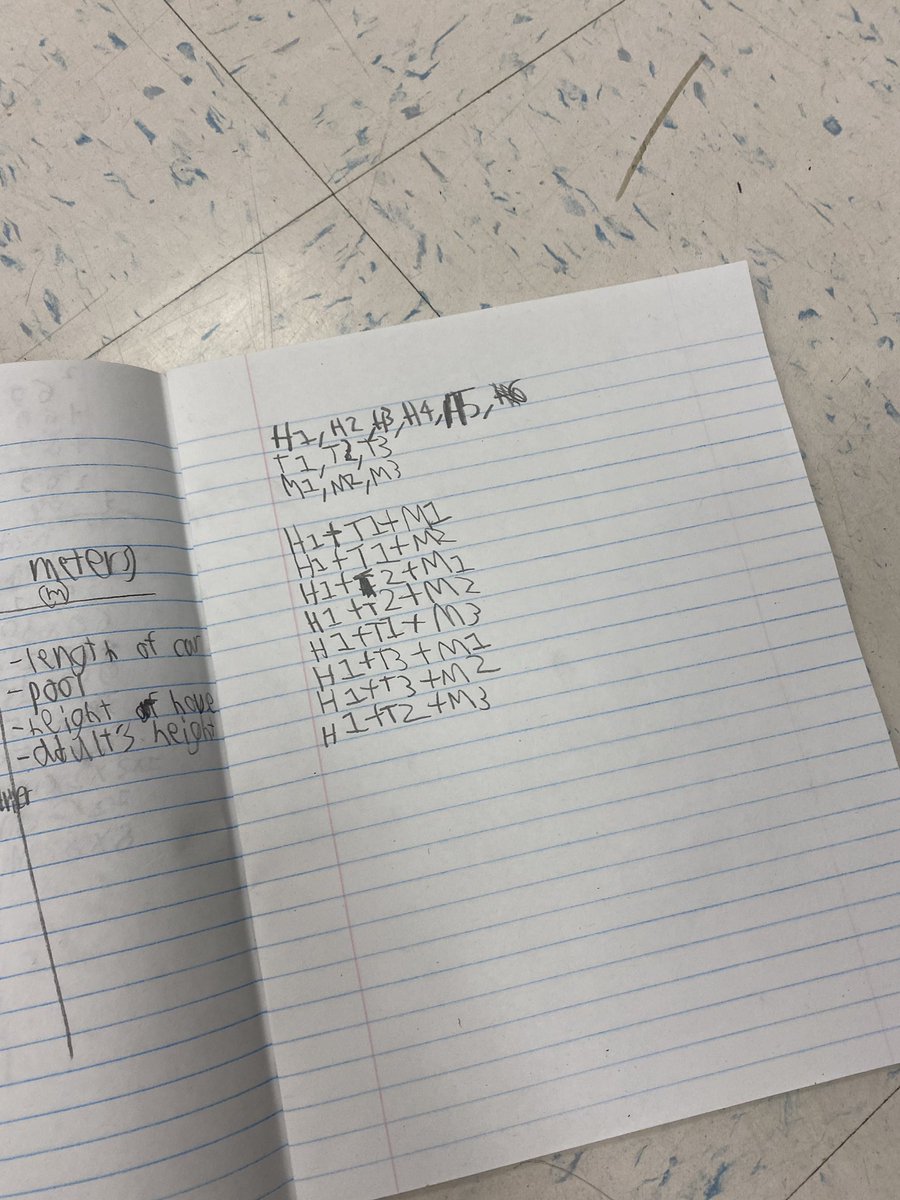 meters
(m)
-length of car
-pool
-height of house
-adult's height
H1, H2, H3, H4, H5,
T1, T2, T3
M1, M2, M3
H1+T1+M1
H1+T1+M2
H1+T2+M1
H1+T2+M2
H1+T1+M3
H1+T3+M1
H1+T3+M2
H1+T2+M3